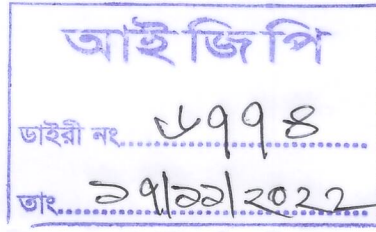 আইজিপি
ডাইরী নং ৬৭৭৪
তাং ১৭/১১/২০২২